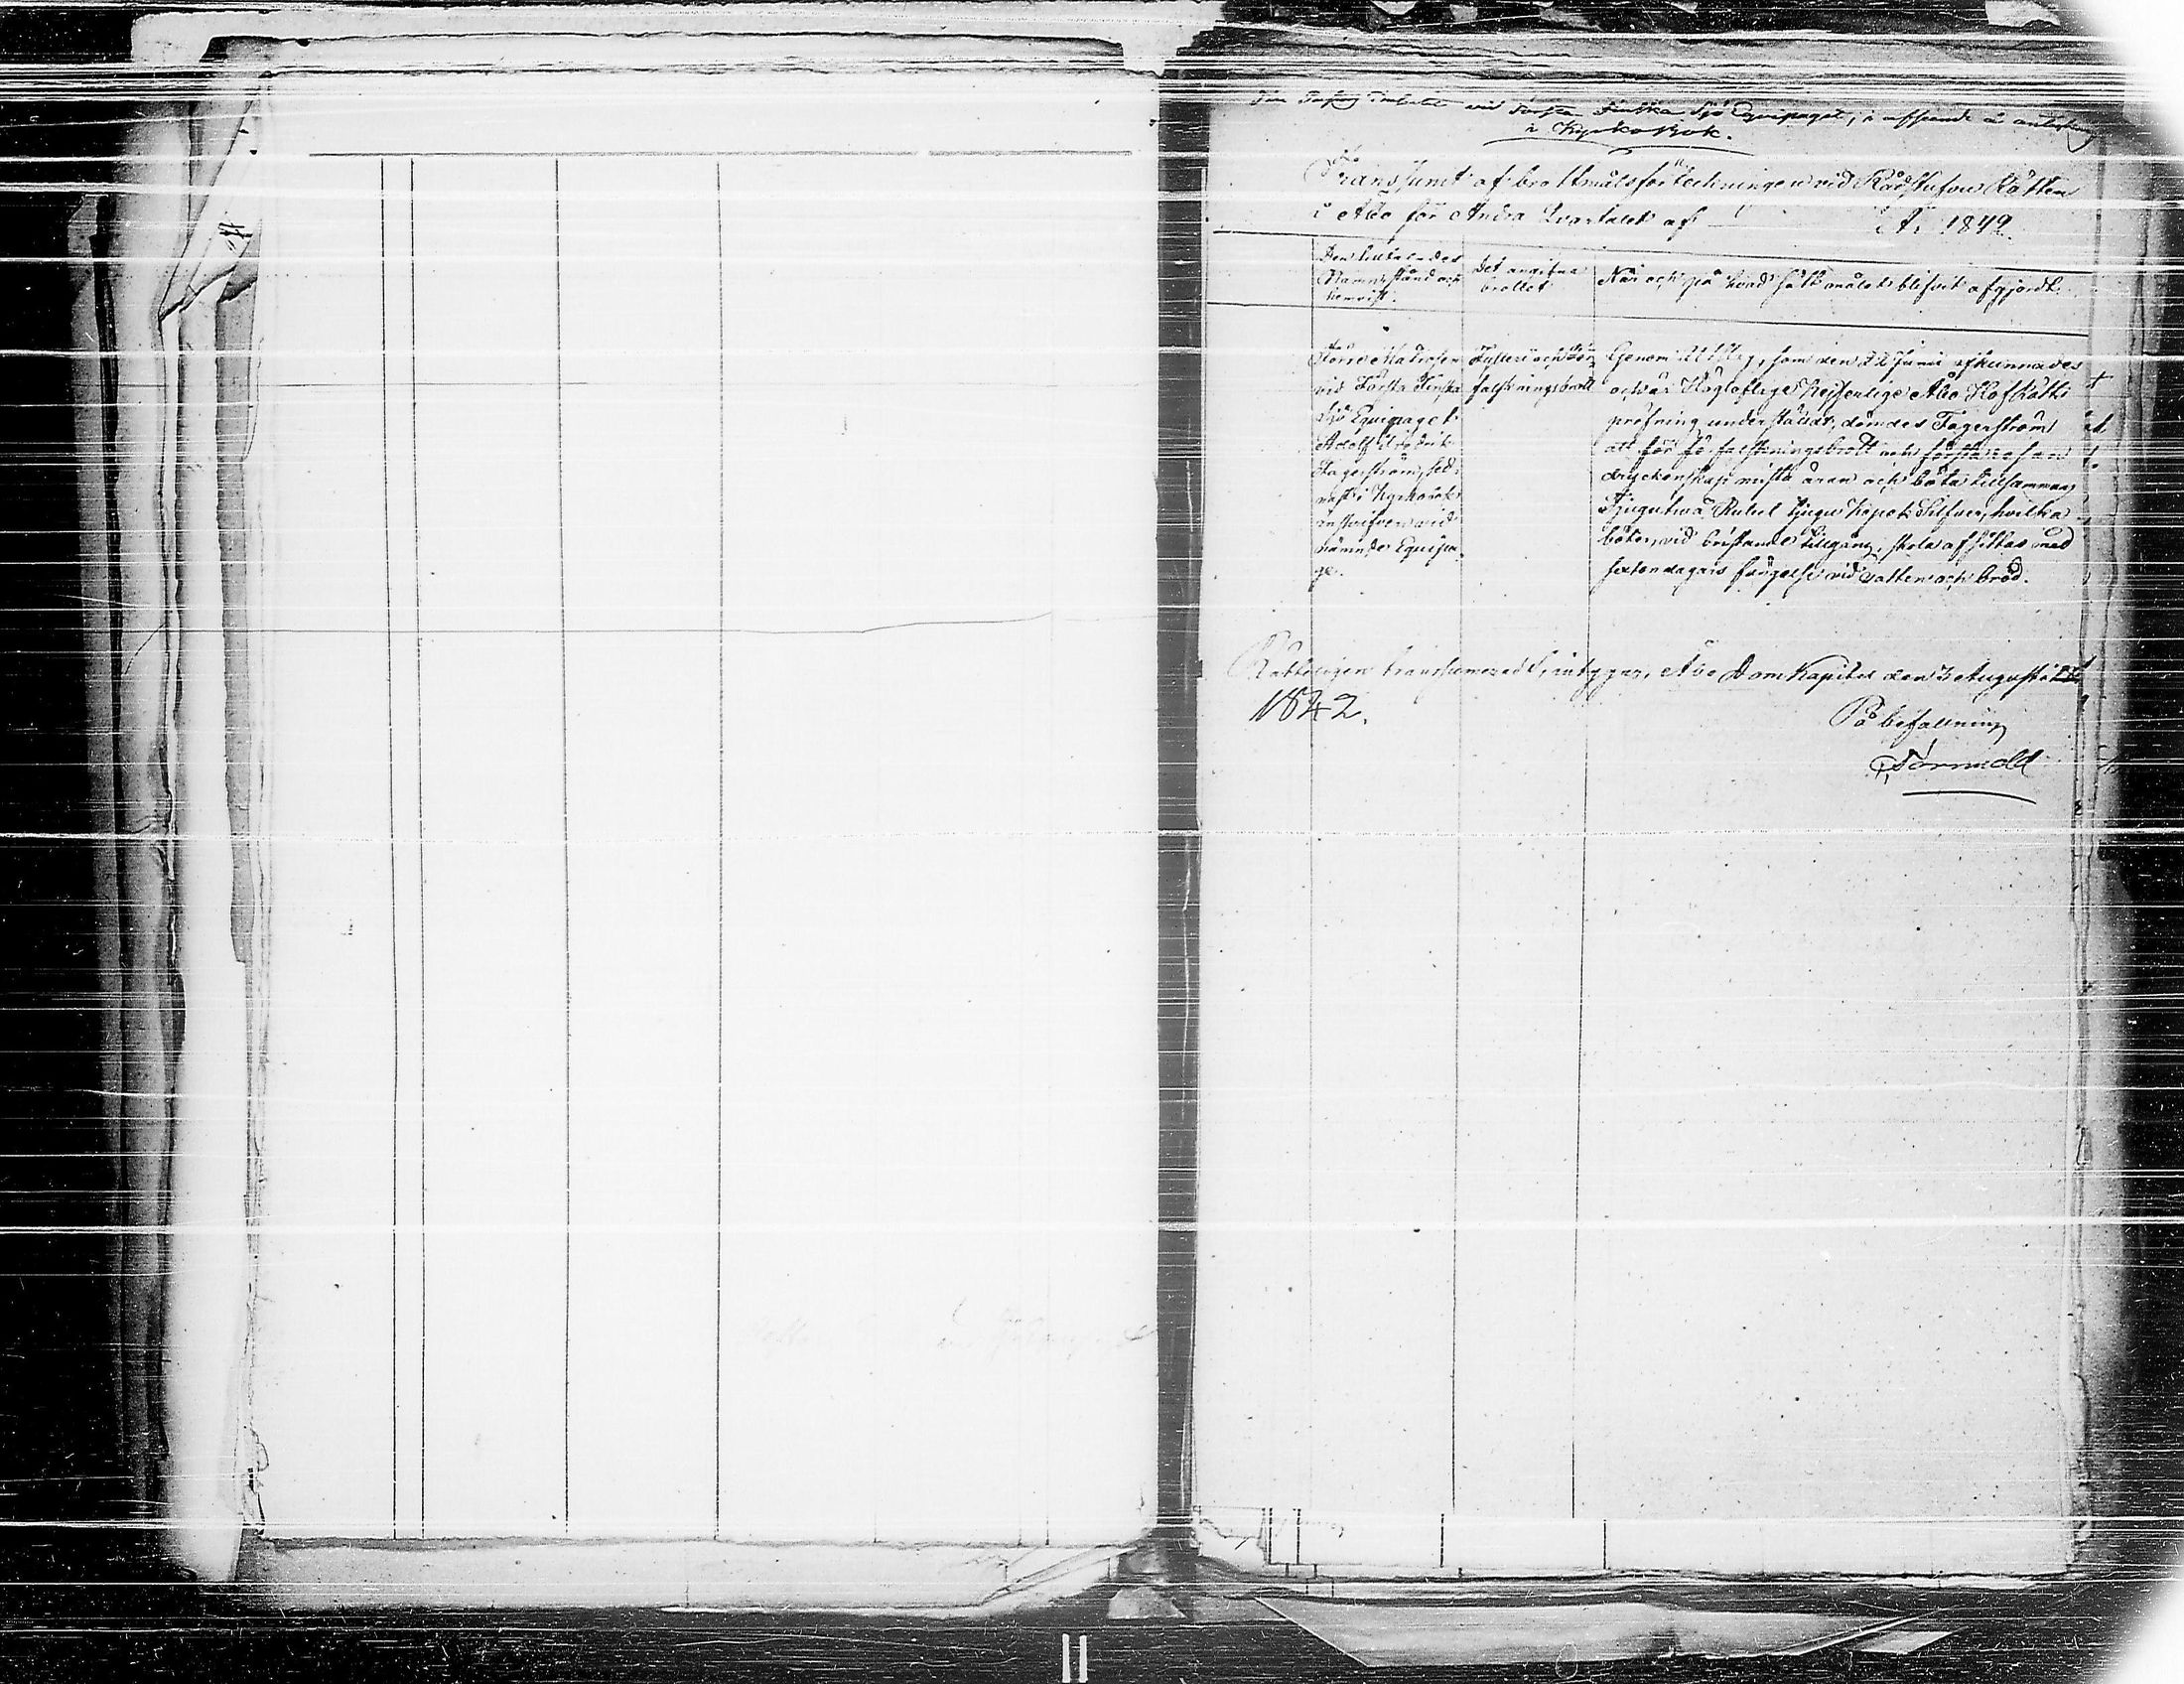 vid Första Finska Sjö Equipaget, i afseende å anteckning
i Kyrkobok.
Transsumt af brottmålsförteckningen vid Rådstufvu Rätten
i Åbo för Andra Qvartalet af År 1842.
Den tilltalades
Namn, stånd och
hemvist.
Det angifna
brottet
När och på hvad sätt målet blifvit afgjordt.
Förre Matrosen
vid Första Finska
Sjö Equipaget
Adolf Fredrik
Fagerström, sed-
nast i Kyrkobok
inskrifven vid
nämnde Equipa-
ge.
Fylleri och för-
falskningsbrott
Genom Utslag, som den 22 Junii afkunnades
och är Högloflige Kejserlige Åbo HofRätts
pröfning underställdt, dömdes Fagerström
att för förfalskningsbrott och första resan
dryckenskap mista äran och böta tillsammans
Tjugutvå Rubel tjugu kopek Silfver, hvilka
böter, vid bristande tillgång, skola afsittas med
sexton dagars fängelse vid vatten och bröd.
Rätteligen transsumeradt, intygar, Åbo DomKapitel den 3 Augusti
1842.
På befallning
Törnudd